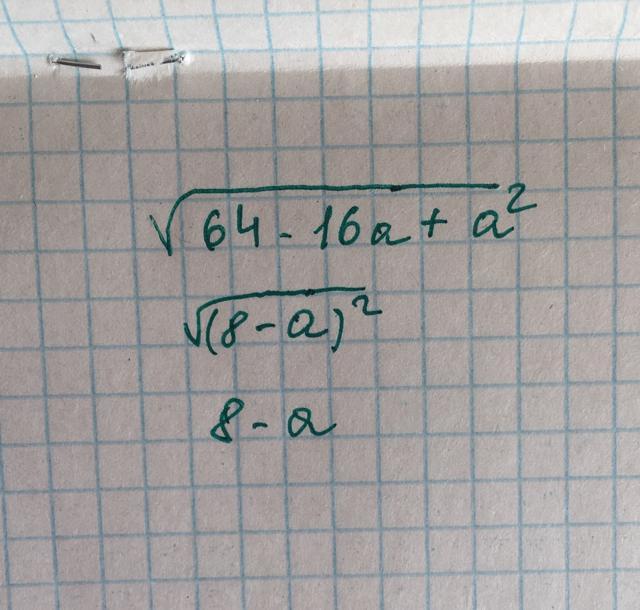 √64 - 16a + a²
√(8 - a)²
8 - a